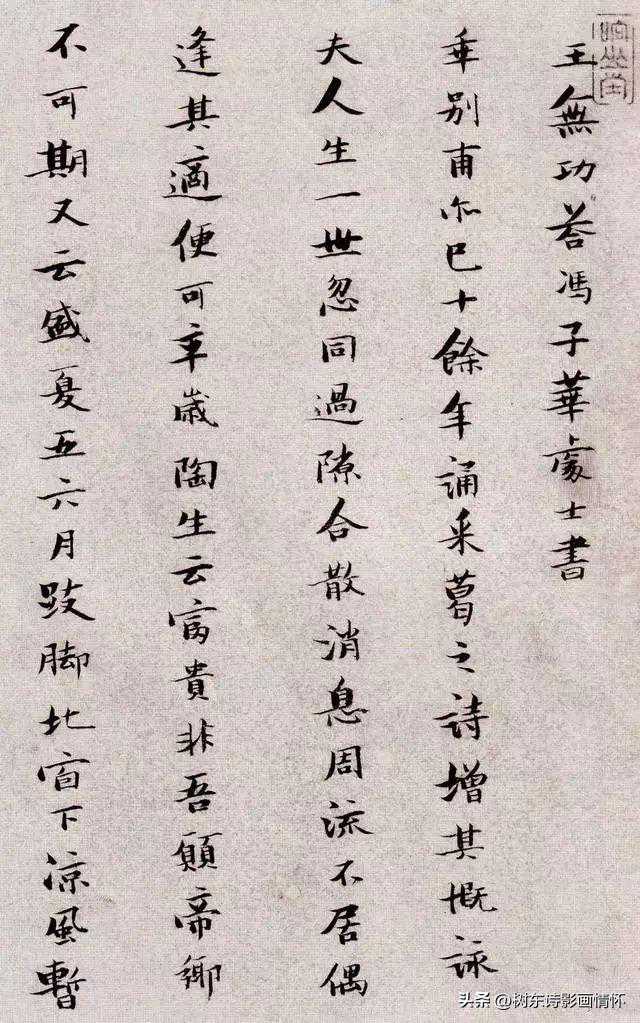 王無功荅馮子華處士書
乖別甫尒已十餘年誦采葛之詩增其慨詠
夫人生一世忽同過隙合散消息周流不居偶
逢其適便可卒歲陶生云富貴非吾願帝鄉
不可期又云盛夏五六月跂脚北窗下涼風暫
头条 @树东诗影画情怀